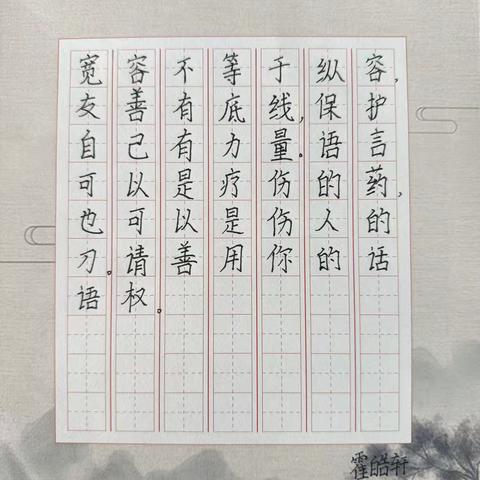 宽容不等于纵容，
友善有底线，保护
自己有力量。语言
可以是疗伤的药，
也可以是伤人的
刀。请善用你的话
语权。
霍皓轩